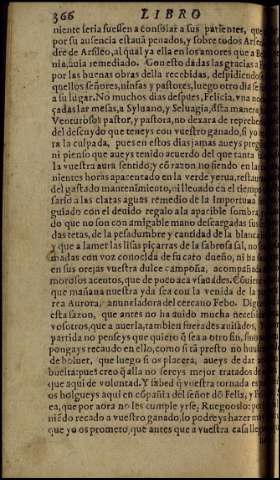 366 LIBRO
niente seria fuessen a consolar a sus parientes, que
por su ausencia estauã penados, y sobre todos Arsen
dre de Arsileo, al qual ya ella en los amores que a Be
nia, auia remediado. Con esto dadas las gracias a F
por las buenas obras della recebidas, despidiendose
quellos señores, ninfas y pastores, luego otro dia se
a su lugar. No muchos dias despues, Felicia, vna no
çadas las mesas, a Syluano, y Seluagia, desta manera
Venturosos pastor, y pastora, no dexara de reprehe
del descuydo que teneys con vuestro ganado, si yo
ra la culpada, pues en estos dias jamas aueys preg
ni pienso que aueys tenido acuerdo del que tanta
la vuestra aura sentido, y cõ razon, no siendo en las
nientes horas apacentado en la verde yerua, restaura
del gastado mantenimiento, ni lleuado en el tiempo
sario a las claras aguas remedio de la importuna
guiado con el deuido regalo a la apacible sombra
do que no son con amigable mano descargadas sus
das tetas, de la pesadumbre y cantidad de la blanca
y que a lamer las lisas piçarras de la sabrosa sal, no s
madas con voz conocida de su caro dueño, ni ha so
en sus orejas vuestra dulce campoña, acompañada
morosos acentos, que de poco aca vsauades. Cõuien
que mañana vuestra yda sea con la venida de la
rea Aurora, anunciadora del cercano Febo. Dig
esta sazon, que antes no ha auido mucha necessi
vosotros, que a auerla, tambien fuerades auisados,
partida no penseys que quiero q̃ sea a otro fin, sino
pongays recaudo en ello, como si tã presto no huui
de boluer, que luego si os plazera, aueys de dar
buelta: pues creo q̃ alla no sereys mejor tratados de
que aqui de voluntad. Y sabed q̃ vuestra tornada es
os holgueys aqui en cõpañia del señor dõ Felis, y Fe
ea, que por aora no les cumple yrse, Rueguoos lo: po
niẽdo recado a vuestro ganado, lo podreys hazer m
que yo os prometo, que antes que a vuestra casa lle